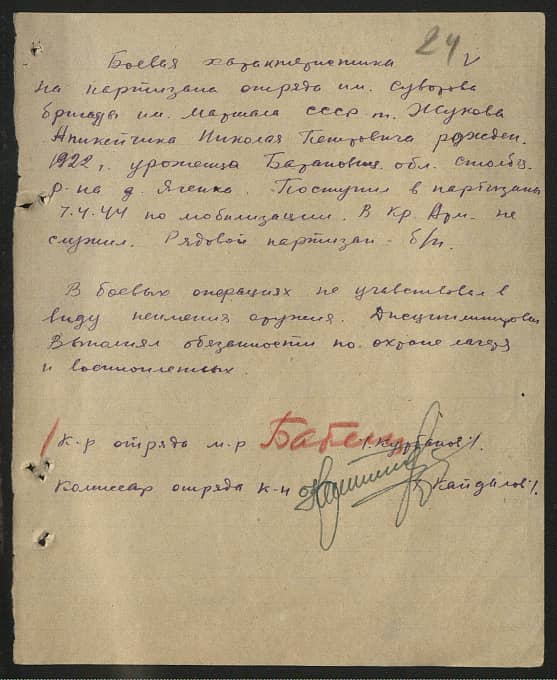 24 v
Боевая характеристика
на партизана отряда им. Суворова
бригады им. Маршала СССР т. Жукова
Апикейчика Николая Петровича рожден.
1922 г. уроженца Баранович. обл. Столбц.
р-на д. Яченка. Поступил в партизаны
7.4.44 по мобилизации. В Кр. Арм. не
служил. Рядовой партизан - б/п.
В боевых операциях не учавствовал в
виду неимения оружия. Дисциплинирован
Выполнял обязанности по охране лагеря
и военнопленных.
К-р отряда м-р /Курбанов/.
Комиссар отряда к-н Кайдалов/.